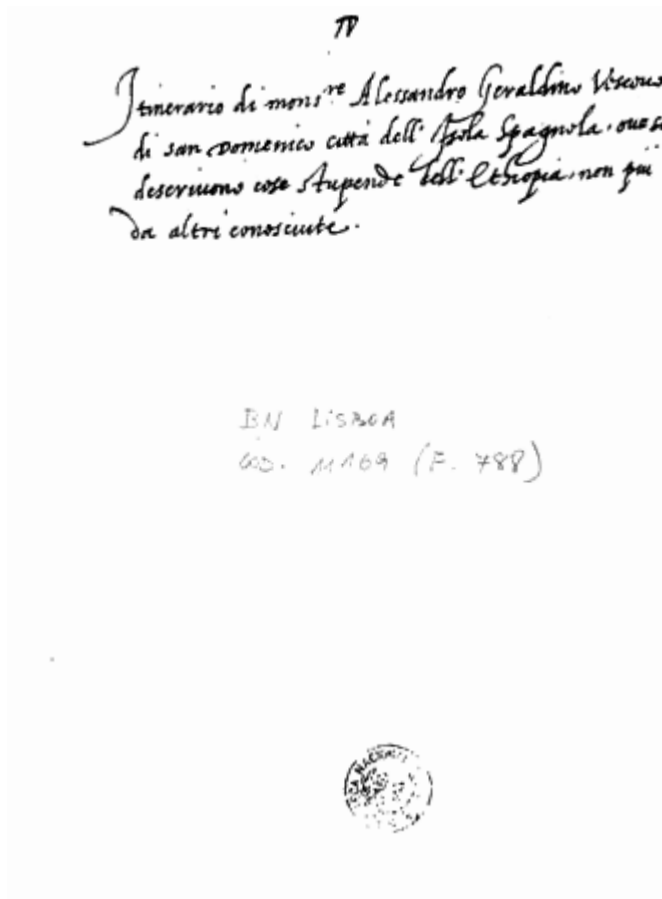 IV
Itinerario di mons.re Alessandro Geraldino Vescovo
di san Domenico città dell' Isola Spagnola, oue se
descriuono cose stupende dell' Ethiopia, non piu
da altri conosciute.
BN LISBOA
COD. 11169 (F. 788)
NACIONAL